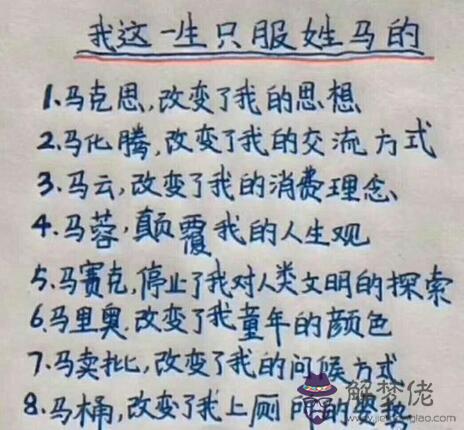 我这一生只服姓马的
1.马克思,改变了我的思想
2.马化腾,改变了我的交流方式
3.马云,改变了我的消费理念
4.马蓉,颠覆我的人生观
5.马赛克,停止了我对人类文明的探索
6.马里奥.改变了我童年的颜色
7.马卖批,改变了我的问候方式
8.马桶,改变了我上厕所的姿势
解梦佬